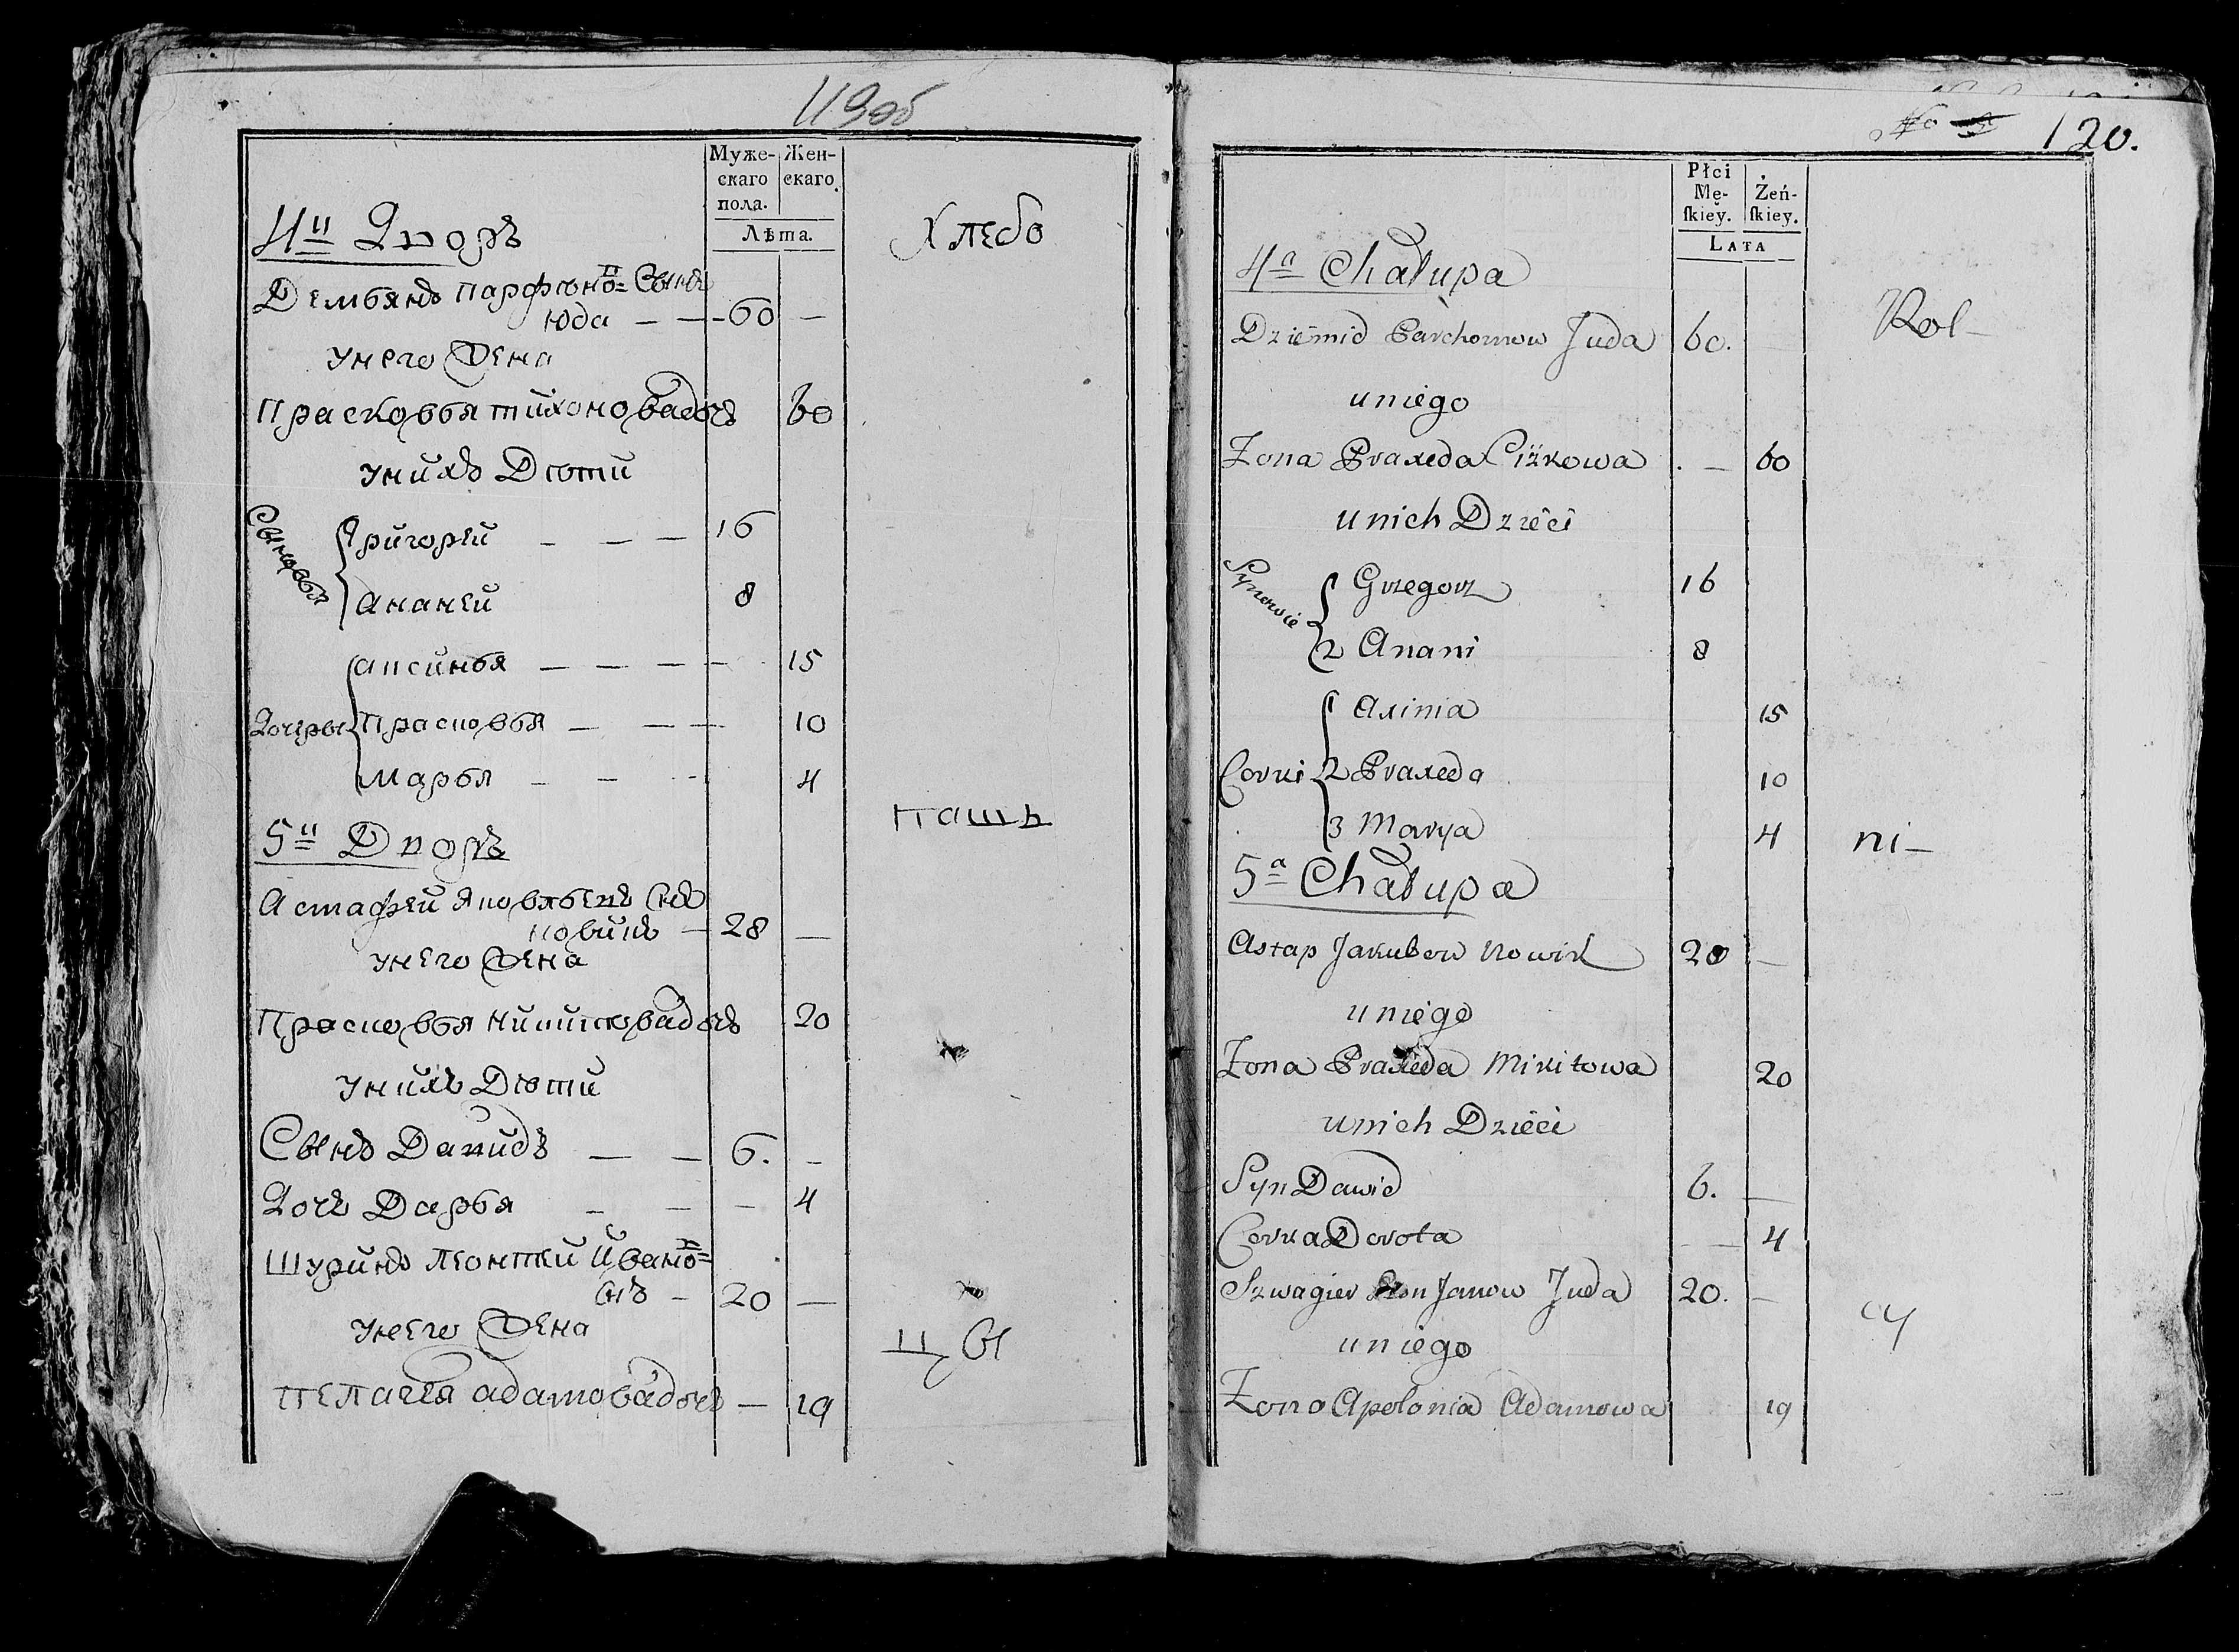 119об
Муже-
скаго
пола.
Жен-
скаго.
Лѣта.
4й Дворъ
Хлебо
Демьянъ Парфоно= Сынъ
Юда — — 60 —
у него Жена
Прасковья Тихонова дочь 60
у нихъ Дѣти
Сыновья
Григорей — — — 16
Ананей 8
Аксинья — — — — 15
Дочеры Прасковья — — — 10
Марья — — — 4
5й Дворъ
пашъ
Астафей Яковлевъ Снъ
Новикъ — 28 —
у него Жена
Прасковья Никитова дочь 20
у нихъ Дѣти
Сынъ Давидъ — — 6. —
Дочь Дарья — — — 4
Шуринъ Леонтей Ивано=
Снъ — 20 —
у него Жена
цы
Пелагея Адамова дочь — 19
120.
Płci
Mę-
ſkiey.
Żeń-
ſkiey.
Lata
4a Chałupa
Rol-
Dziemid Parchomow Juda 60.
u niego
Żona Praxeda Ciżkowa . — 60
u nich Dzieci
Synowie
Grzegorz 16
2 Anani 8
1 Axinia 15
Corki 2 Praxeda 10
3 Marya 4
ni-
5a Chałupa
Astap Jakubow Nowik 28 —
u niego
Żona Praxeda Mikitowa 20
u nich Dzieci
Syn Dawid 6. —
Corka Dorota — 4
Szwagier Janow Juda 20. —
cy
u niego
Żona Apolonia Adamowa 19